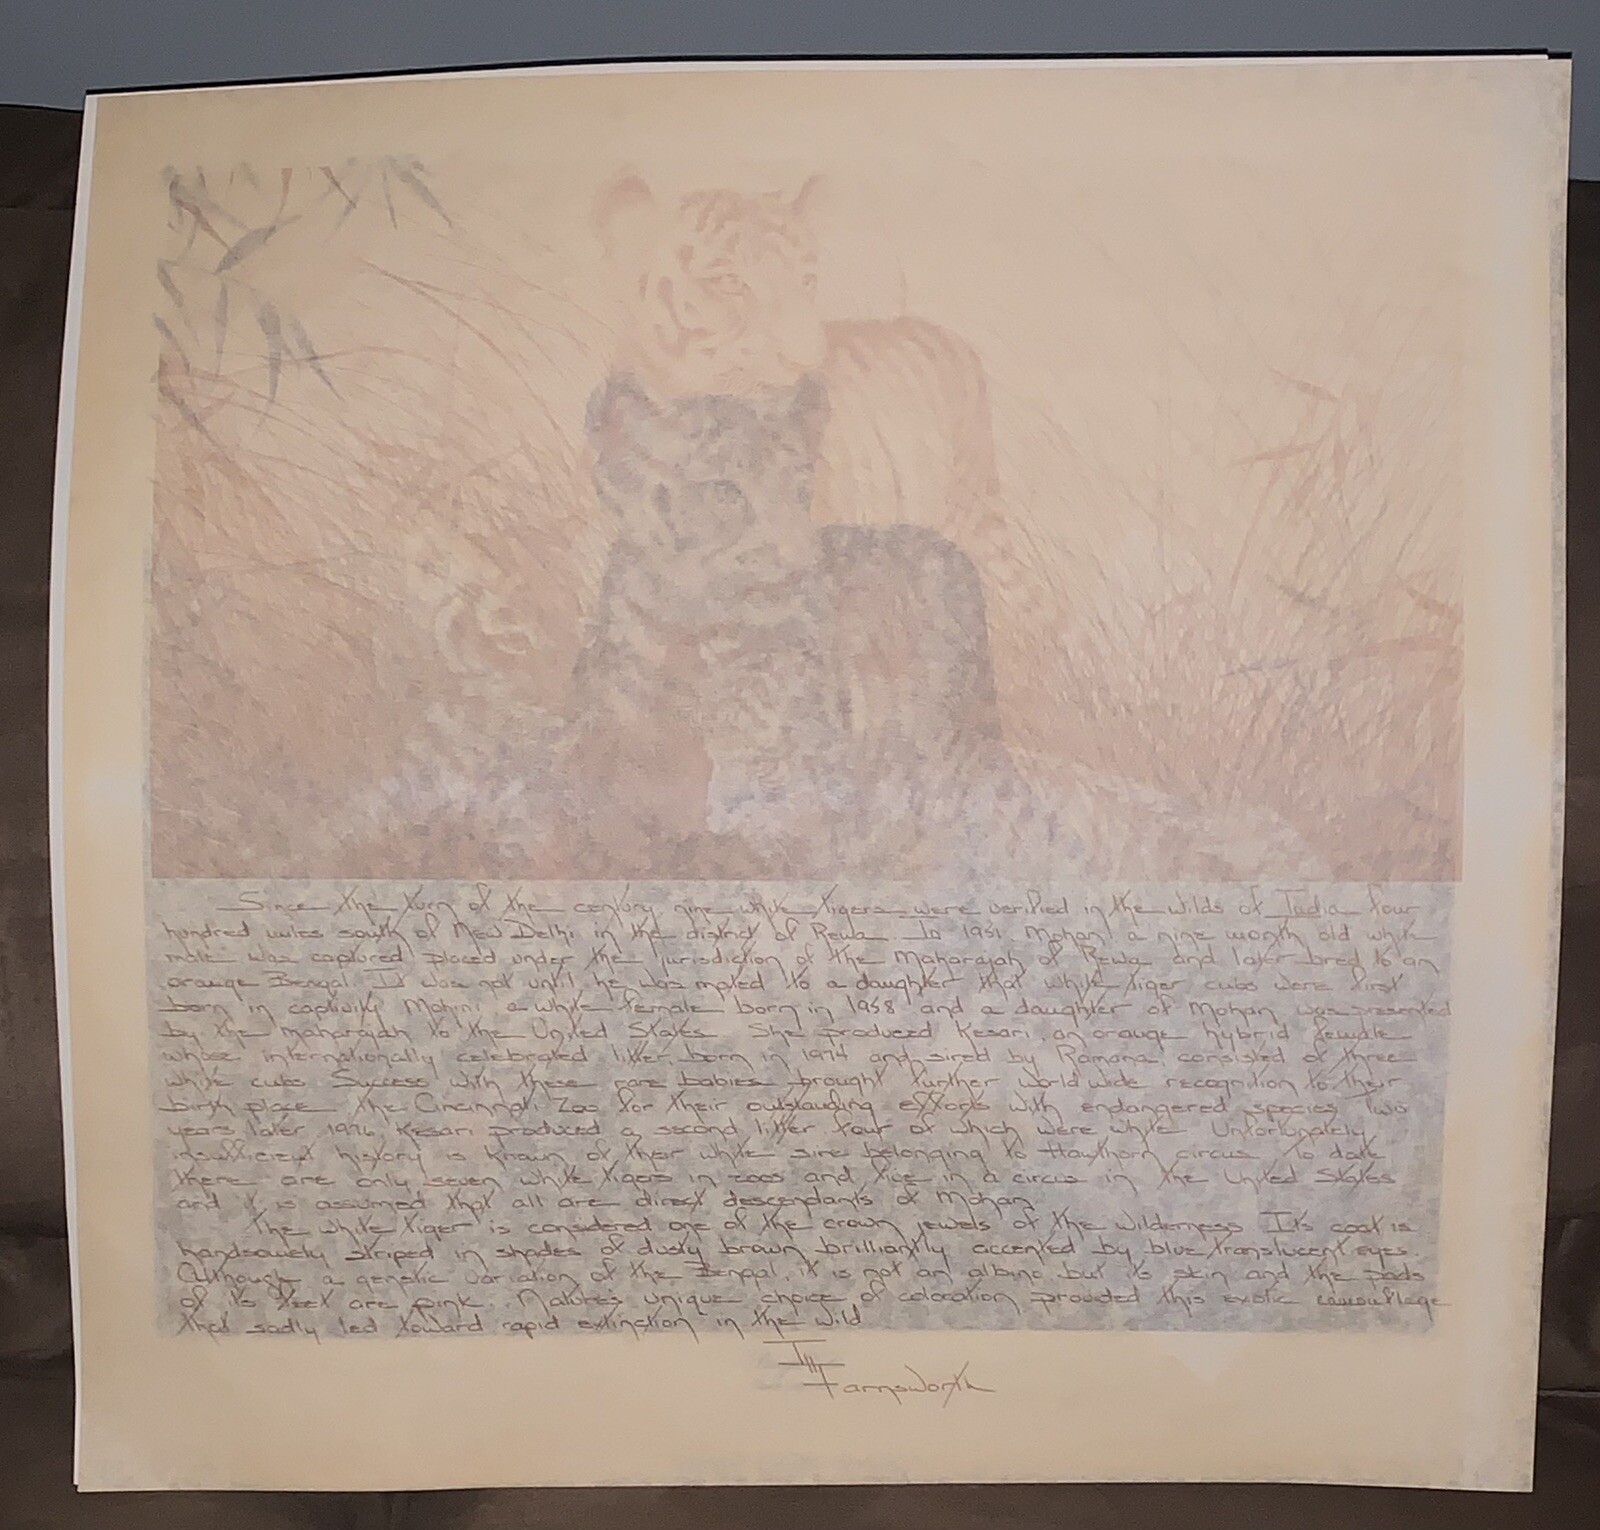 Since the turn of the century, nine white tigers were verified in the wilds of India four
hundred miles south of New Delhi in the district of Rewa. In 1951, Mohan, a nine month old white
male was captured placed under the jurisdiction of the Maharajah of Rewa and later bred to an
orange Bengal. It was not until he was mated to a daughter that white tiger cubs were first
born in captivity. Mohini, a white female born in 1958 and a daughter of Mohan was presented
by the maharajah to the United States. She produced Kesari, an orange hybrid female
whose internationally celebrated litter, born in 1974 and sired by Ramana, consisted of three
white cubs. Success with these rare babies brought further world wide recognition to their
birth place, the Cincinnati Zoo for their outstanding efforts with endangered species. Two
years later, 1976, Kesari produced a second litter four of which were white. Unfortunately
insufficient history is known of their white sire belonging to Hawthorn circus. To date
there are only seven white tigers in zoos and five in a circus in the United States
and it is assumed that all are direct descendants of Mohan.
The white tiger is considered one of the crown jewels of the wilderness. Its coat is
handsomely striped in shades of dusty brown brilliantly accented by blue translucent eyes.
Although a genetic variation of the Bengal, it is not an albino, but its skin and the pads
of its feet are pink. Nature's unique choice of coloration provided this exotic camouflage
that sadly led toward rapid extinction in the wild.
Farnsworth